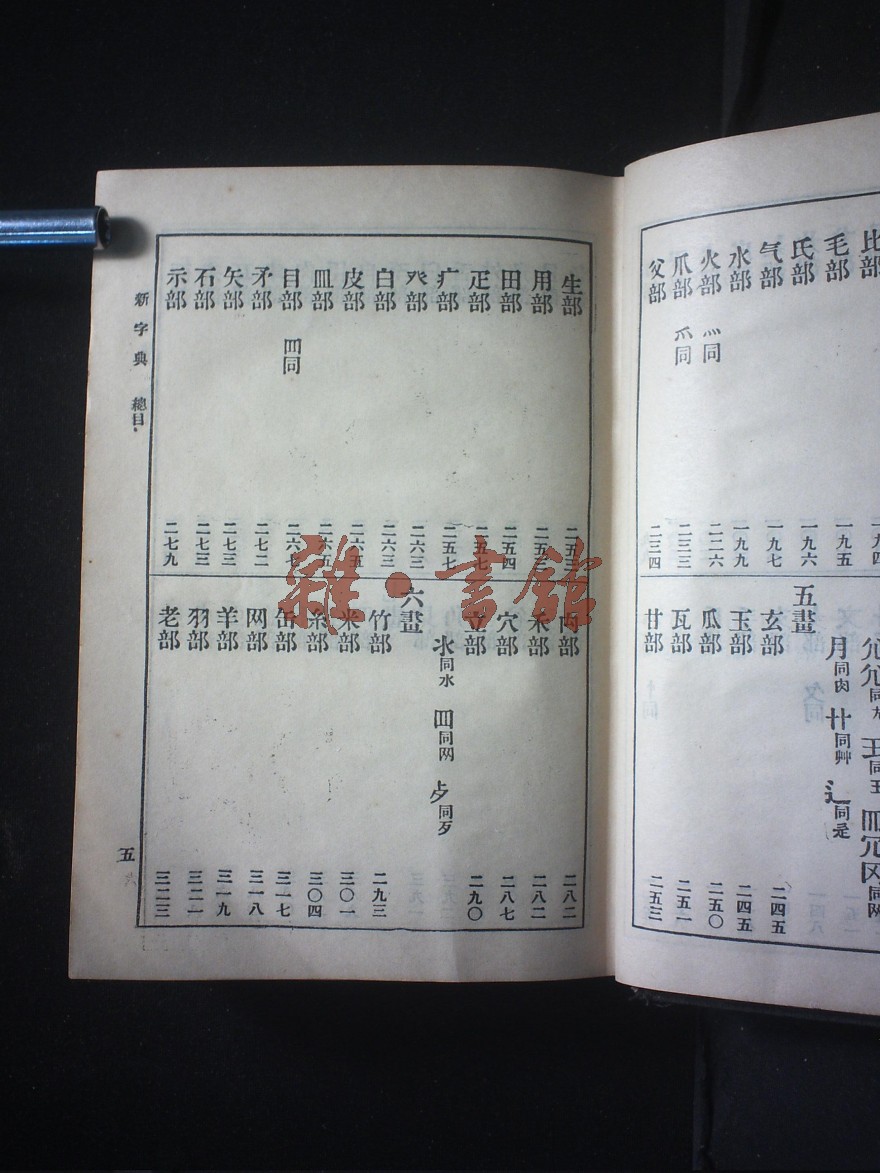 比部 一九四
毛部 一九五
氏部 一九六
气部 一九七
水部 一九九
火部 灬同 二二六
爪部 爫同 二三三
父部 二三四
同尢 王同玉 同网
月同肉 艹同艸 辶同辵
五畫
玄部 二四五
玉部 二四五
瓜部 二五〇
瓦部 二五一
甘部 二五三
生部 二五三
用部 二五三
田部 二五四
疋部 二五七
疒部 二五七
癶部 二六三
白部 二六三
皮部 二六五
皿部 二六五
目部 罒同 二六七
矛部 二七二
矢部 二七三
石部 二七三
示部 二七九
禸部 二八二
禾部 二八二
穴部 二八七
立部 二九〇
氺同水 罒同网 歺同歹
六畫
竹部 二九三
米部 三〇一
糸部 三〇四
缶部 三一七
网部 三一八
羊部 三一九
羽部 三二一
老部 三二三
新字典 總目 五
雜·書館